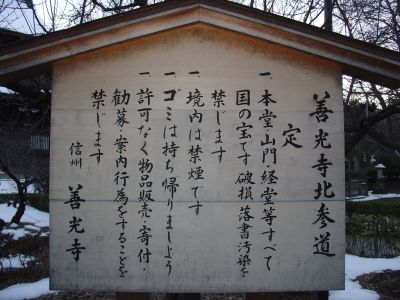 善光寺北参道
定
一、本堂・山門・経堂等すべて
国の宝です 破損 落書汚染を
禁じます
一、境内は禁煙です
一、ゴミは持ち帰りましょう
一、許可なく物品販売・寄付・
勧募・案内行為をすることを
禁じます
信州 善光寺